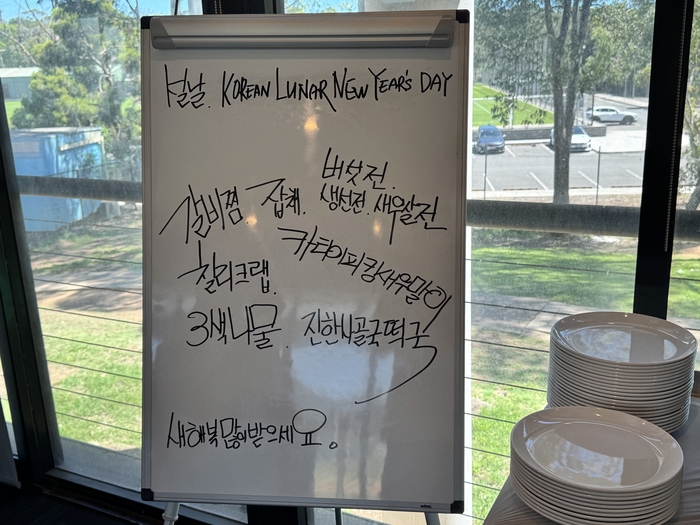 설날. KOREAN LUNAR NEW YEAR'S DAY
버섯전.
갈비찜. 잡채. 생선전. 새우살전
카다이피킹새우말이
칠리크랩.
3색나물. 진한사골국떡국
새해복많이받으세요.